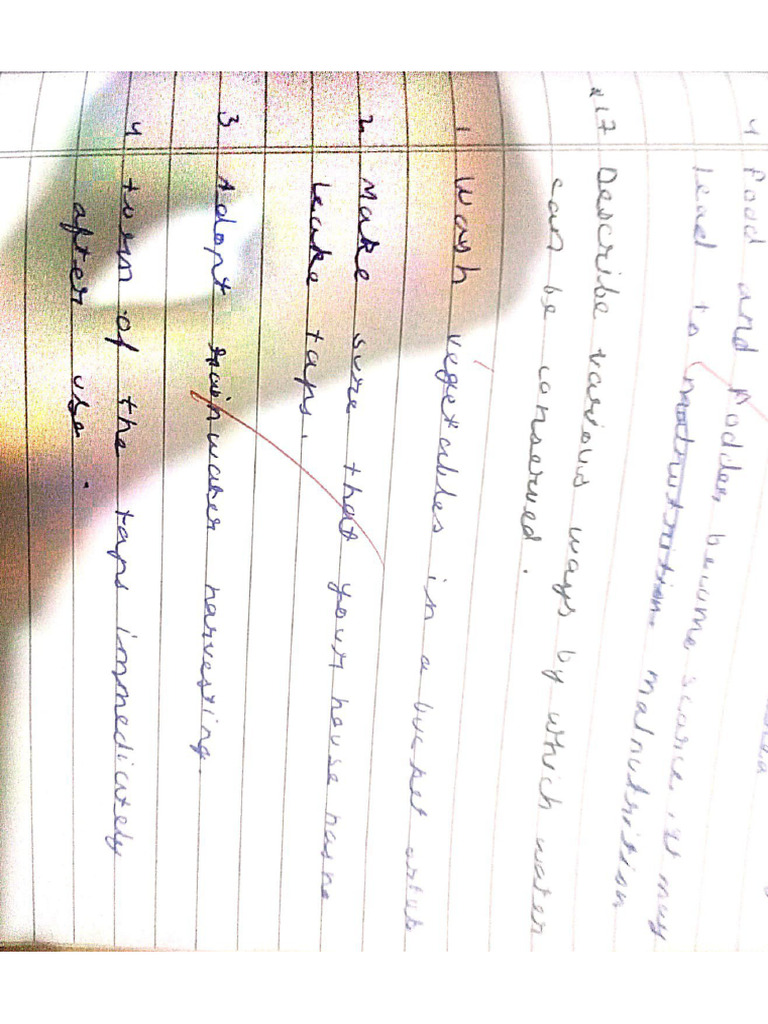 4 Food and Fodder become scarce, it may
lead to malnutrition
*17 Describe various ways by which water
can be conserved.
1 Wash vegetables in a bucket
2. Make sure that your house has no
leake taps.
3 Adopt rainwater harvesting.
4 turn of the taps immedicately
after use.